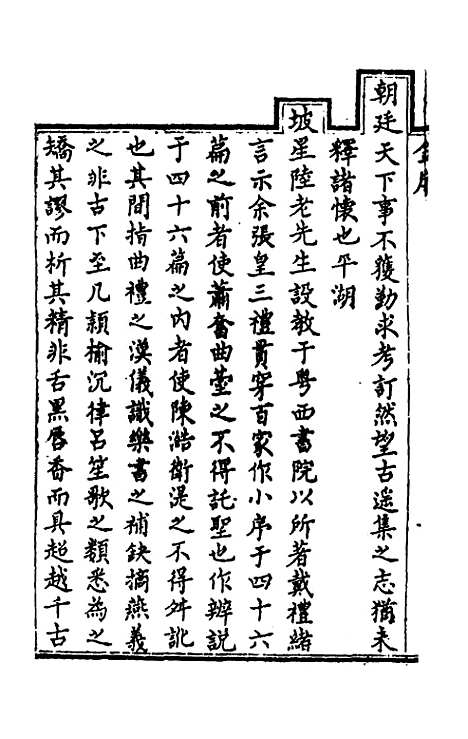 朝廷天下事不獲勤求考訂然望古遥集之志猶未
釋諸懷也平湖
坡星陸老先生設教于粤西書院以所著戴禮緒
言示余張皇三禮貫穿百家作小序于四十六
篇之前者使蕭奮曲臺之不得託聖也作辨說
于四十六篇之内者使陳澔衛湜之不得舛訛
也其間指曲禮之漢儀譏樂書之補缺摘燕義
之非古下至几頴榆沉律吕笙歌之類悉為之
矯其謬而析其精非舌黑唇香而具超越千古